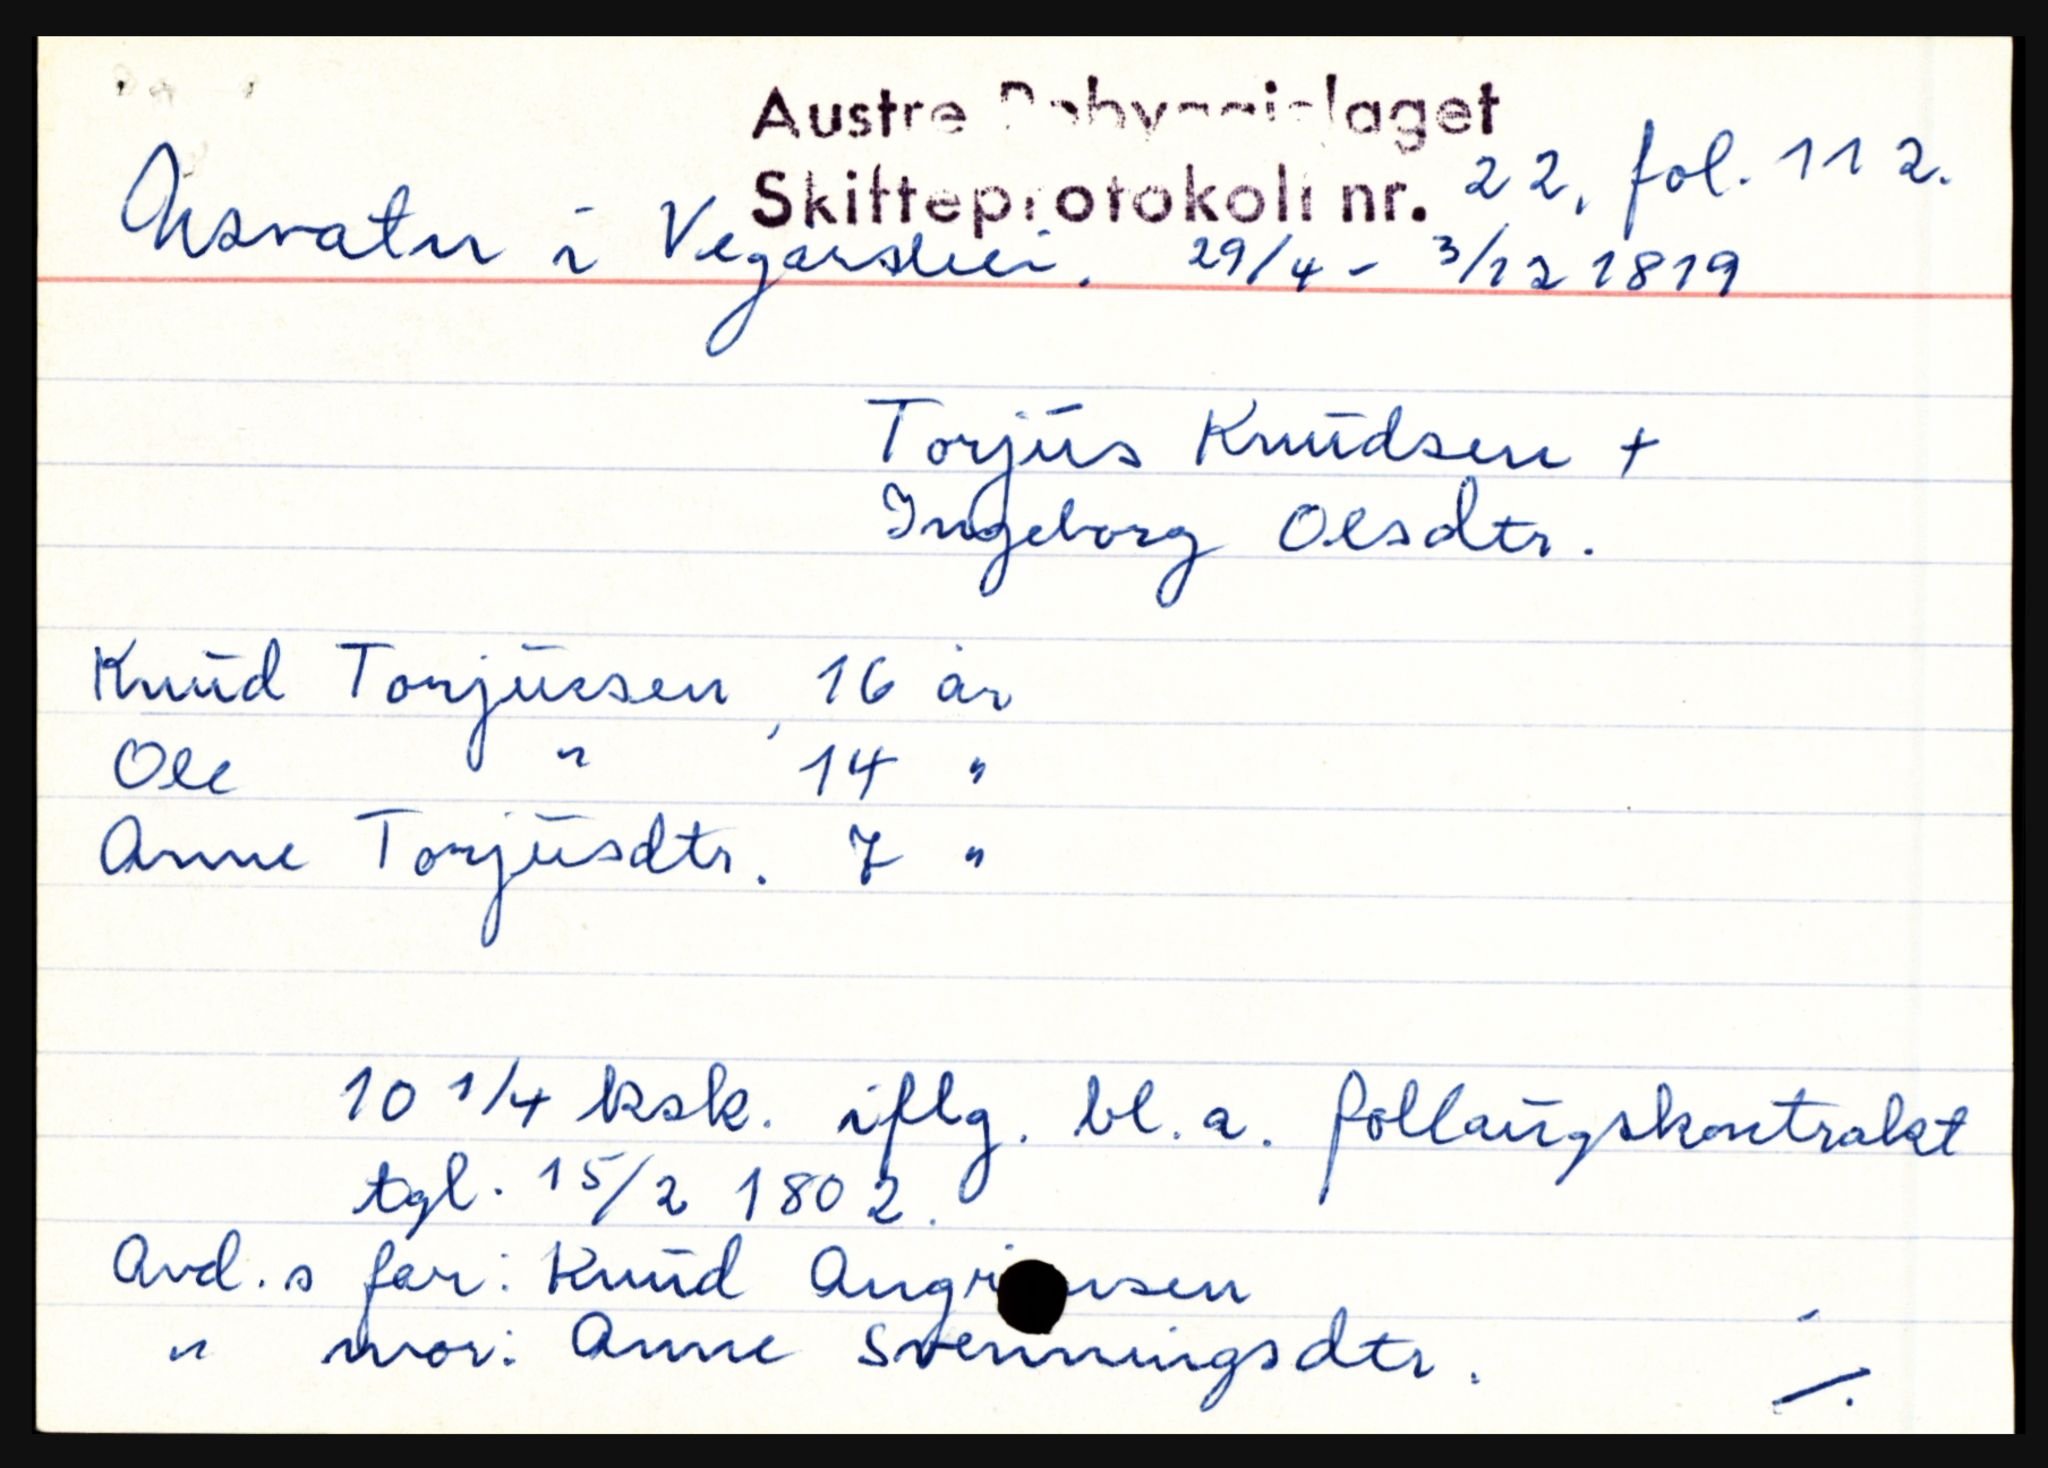 Austre Robyggjelaget
Skifteprotokoll nr. 22, fol. 112.
Åsvatn i Vegårshei. 29/4 - 3/12 1819
Torjus Knudsen +
Ingeborg Olsdtr.
Knud Torjussen, 16 år
Ole " 14 "
Anne Torjusdtr. 7 "
10 1/4 ksk. iflg. bl.a. follaugskontrakt
tgl. 15/2 1802.
Avd.s far: Knud
" mor: Anne Svenningsdtr. ./.